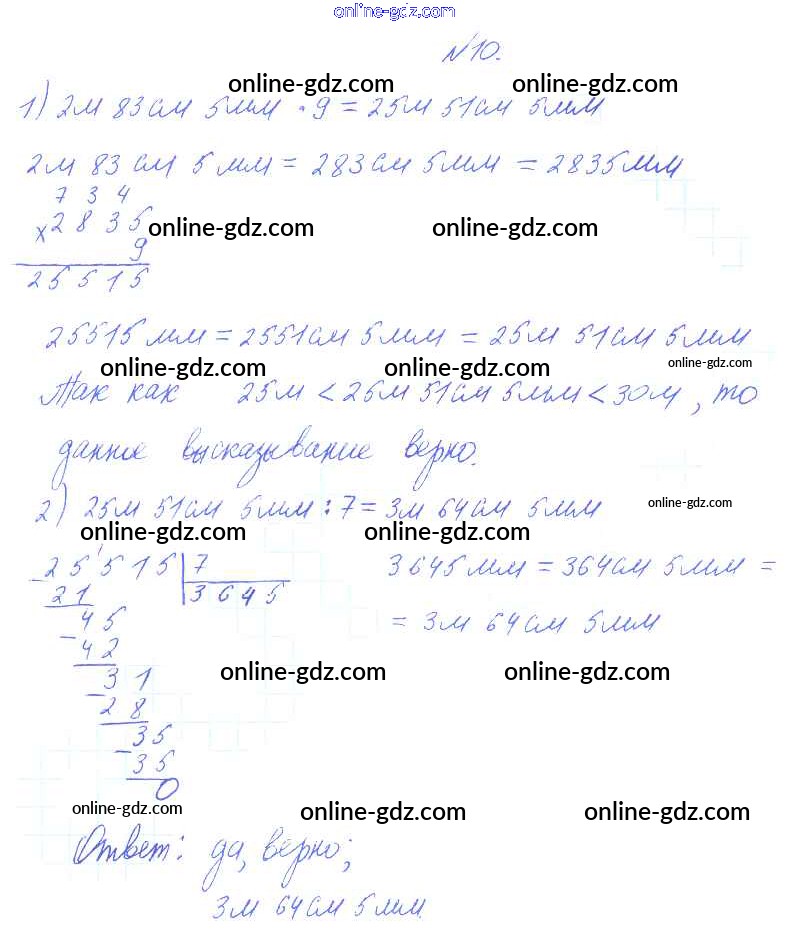 online-gdz.com
№10.
online-gdz.com online-gdz.com
1) 2м 83см 5мм · 9 = 25м 51см 5мм
2м 83см 5мм = 283см 5мм = 2835мм
7 3 4
х 2 8 3 5 online-gdz.com online-gdz.com
9
2 5 5 1 5
25515мм = 2551см 5мм = 25м 51см 5мм
online-gdz.com online-gdz.com online-gdz.com
Так как 25м < 26м 51см 5мм < 30м, то
данное высказывание верно.
2) 25м 51см 5мм : 7 = 3м 64см 5мм online-gdz.com
online-gdz.com online-gdz.com
- 2 5 5 1 5 | 7 3645мм = 364см 5мм =
2 1 3 6 4 5
- 4 5 = 3м 64см 5мм
4 2
- 3 1 online-gdz.com online-gdz.com
2 8
- 3 5
3 5
0
online-gdz.com online-gdz.com online-gdz.com
Ответ: да, верно;
3м 64см 5мм.